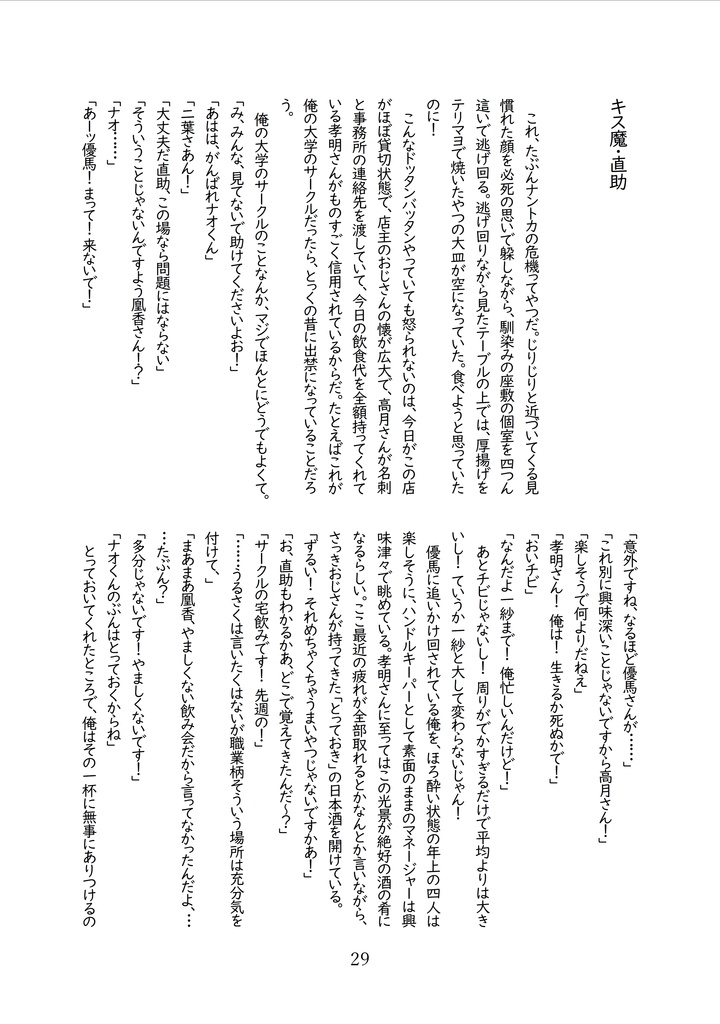 キス魔・直助
　これ、たぶんナントカの危機ってやつだ。じりじりと近づいてくる見
慣れた顔を必死の思いで躱しながら、馴染みの座敷の個室を四つん
這いで逃げ回る。逃げ回りながら見たテーブルの上では、厚揚げを
テリマヨで焼いたやつの大皿が空になっていた。食べようと思っていた
のに！
　こんなドッタンバッタンやっていても怒られないのは、今日がこの店
がほぼ貸切状態で、店主のおじさんの懐が広大で、高月さんが名刺
と事務所の連絡先を渡していて、今日の飲食代を全額持ってくれて
いる孝明さんがものすごく信用されているからだ。たとえばこれが
俺の大学のサークルだったら、とっくの昔に出禁になっていることだろ
う。
　俺の大学のサークルのことなんか、マジでほんとにどうでもよくて。
「み、みんな、見てないで助けてくださいよお！」
「あはは、がんばれナオくん」
「二葉さあん！」
「大丈夫だ直助、この場なら問題にはならない」
「そういうことじゃないんですよう凰香さん！？」
「ナオ……」
「あーッ優馬！まって！来ないで！」
「意外ですね、なるほど優馬さんが……」
「これ別に興味深いことじゃないですから高月さん！」
「楽しそうで何よりだねえ」
「孝明さん！　俺は！　生きるか死ぬかで！」
「おいチビ」
「なんだよ一紗まで！　俺忙しいんだけど！」
　あとチビじゃないし！　周りがでかすぎるだけで平均よりは大き
いし！　ていうか一紗と大して変わらないじゃん！
　優馬に追いかけ回されている俺を、ほろ酔い状態の年上の四人は
楽しそうに、ハンドルキーパーとして素面のままのマネージャーは興
味津々で眺めている。孝明さんに至ってはこの光景が絶好の酒の肴に
なるらしい。ここ最近の疲れが全部取れるとかなんとか言いながら、
さっきおじさんが持ってきた「とっておき」の日本酒を開けている。
「ずるい！　それめちゃくちゃうまいやつじゃないですかあ！」
「お、直助もわかるかあ、どこで覚えてきたんだ～？」
「サークルの宅飲みです！　先週の！」
「……うるさくは言いたくはないが職業柄そういう場所は充分気を
付けて、」
「まあまあ凰香、やましくない飲み会だから言ってなかったんだよ、…
…たぶん？」
「多分じゃないです！やましくないです！」
「ナオくんのぶんはとっておくからね」
　とっておいてくれたところで、俺はその一杯に無事にありつけるの
29